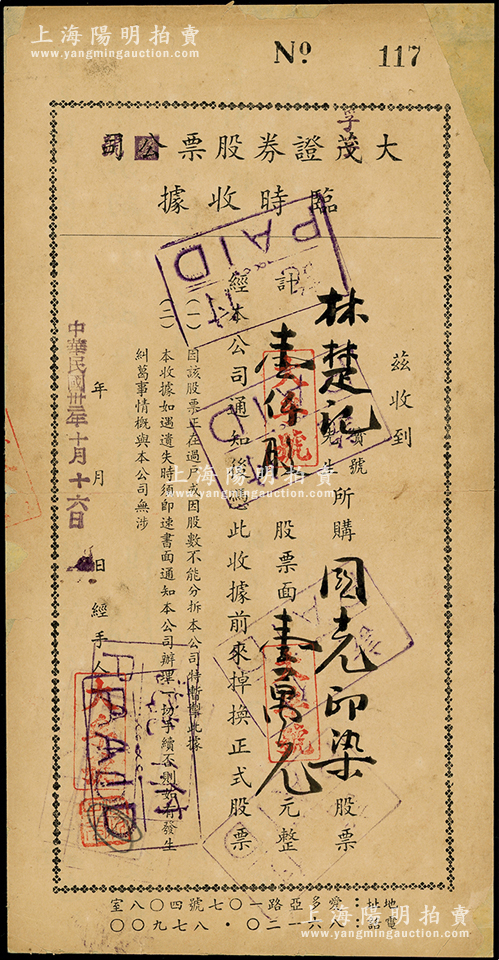 上海陽明拍卖
www.yangmingauction.com
上海陽明拍卖
www.yangmingauction.com
No. 117
孚
大茂證券股票公司
臨時收據
茲收到
林楚記
寶號
先生
所購
國光印染
股票
計
壹仟股
股票面
壹萬元
元整
經本公司通知後憑此收據前來掉換正式股票
(一)因該股票正在過戶或因股數不能分拆本公司特暫掣此據
(二)本收據如遇遺失時須即速書面通知本公司辦理一切手續否則如有發生
糾葛事情概與本公司無涉
中華民國卅三年十月十六日
年 月 日 經手人
PAID
付
PAID
PAID
地址：愛多亞路一〇七號四〇八室
電話：八六一二〇・八七九〇〇
上海陽明拍卖
www.yangmingauction.com
上海陽明拍卖
www.yangmingauction.com